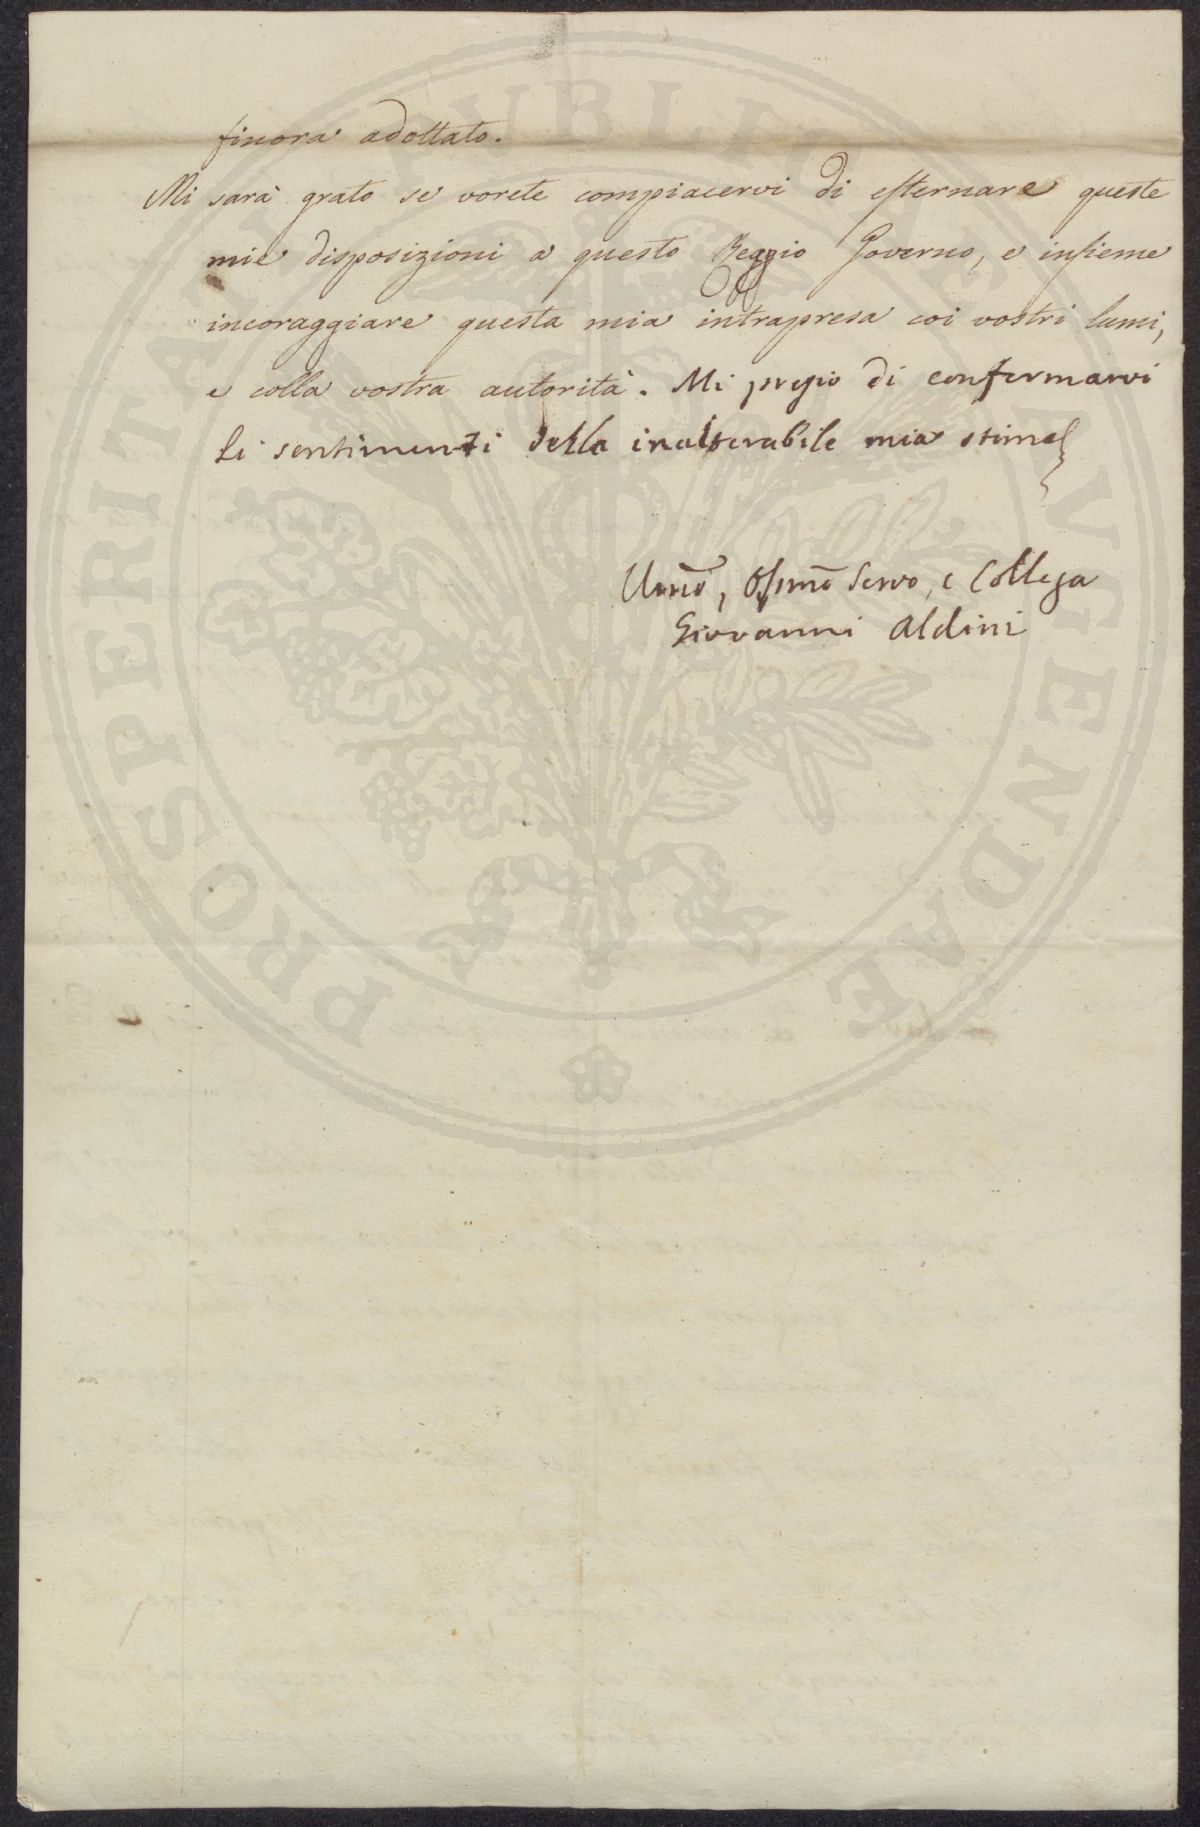 finora adottato.
Mi sarà grato se vorete compiacervi di esternare queste
mie disposizioni a questo Reggio Governo, e insieme
incoraggiare questa mia intrapresa coi vostri lumi,
e colla vostra autorità. Mi pregio di confermarvi
li sentimenti della inalterabile mia stima
Umo, Ossmo Servo, e Collega
Giovanni Aldini
PROSPERITATI PUBLICAE AUGENDAE